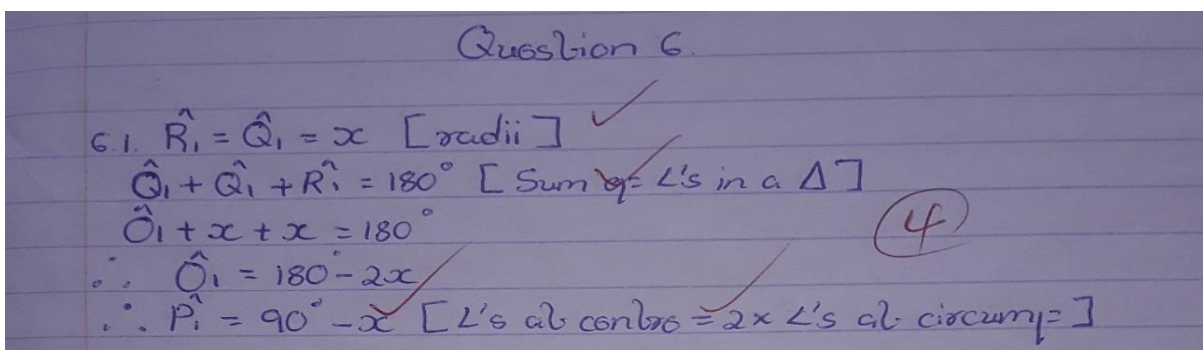 Question 6.
6.1. R̂₁ = Q̂₁ = x [radii]
Q̂₁ + Q̂₁ + R̂₁ = 180° [Sum of L's in a Δ]
Ô₁ + x + x = 180°
4
∴ Ô₁ = 180° - 2x
∴ P̂₁ = 90° - x [L's at centre = 2x L's at circumf=]